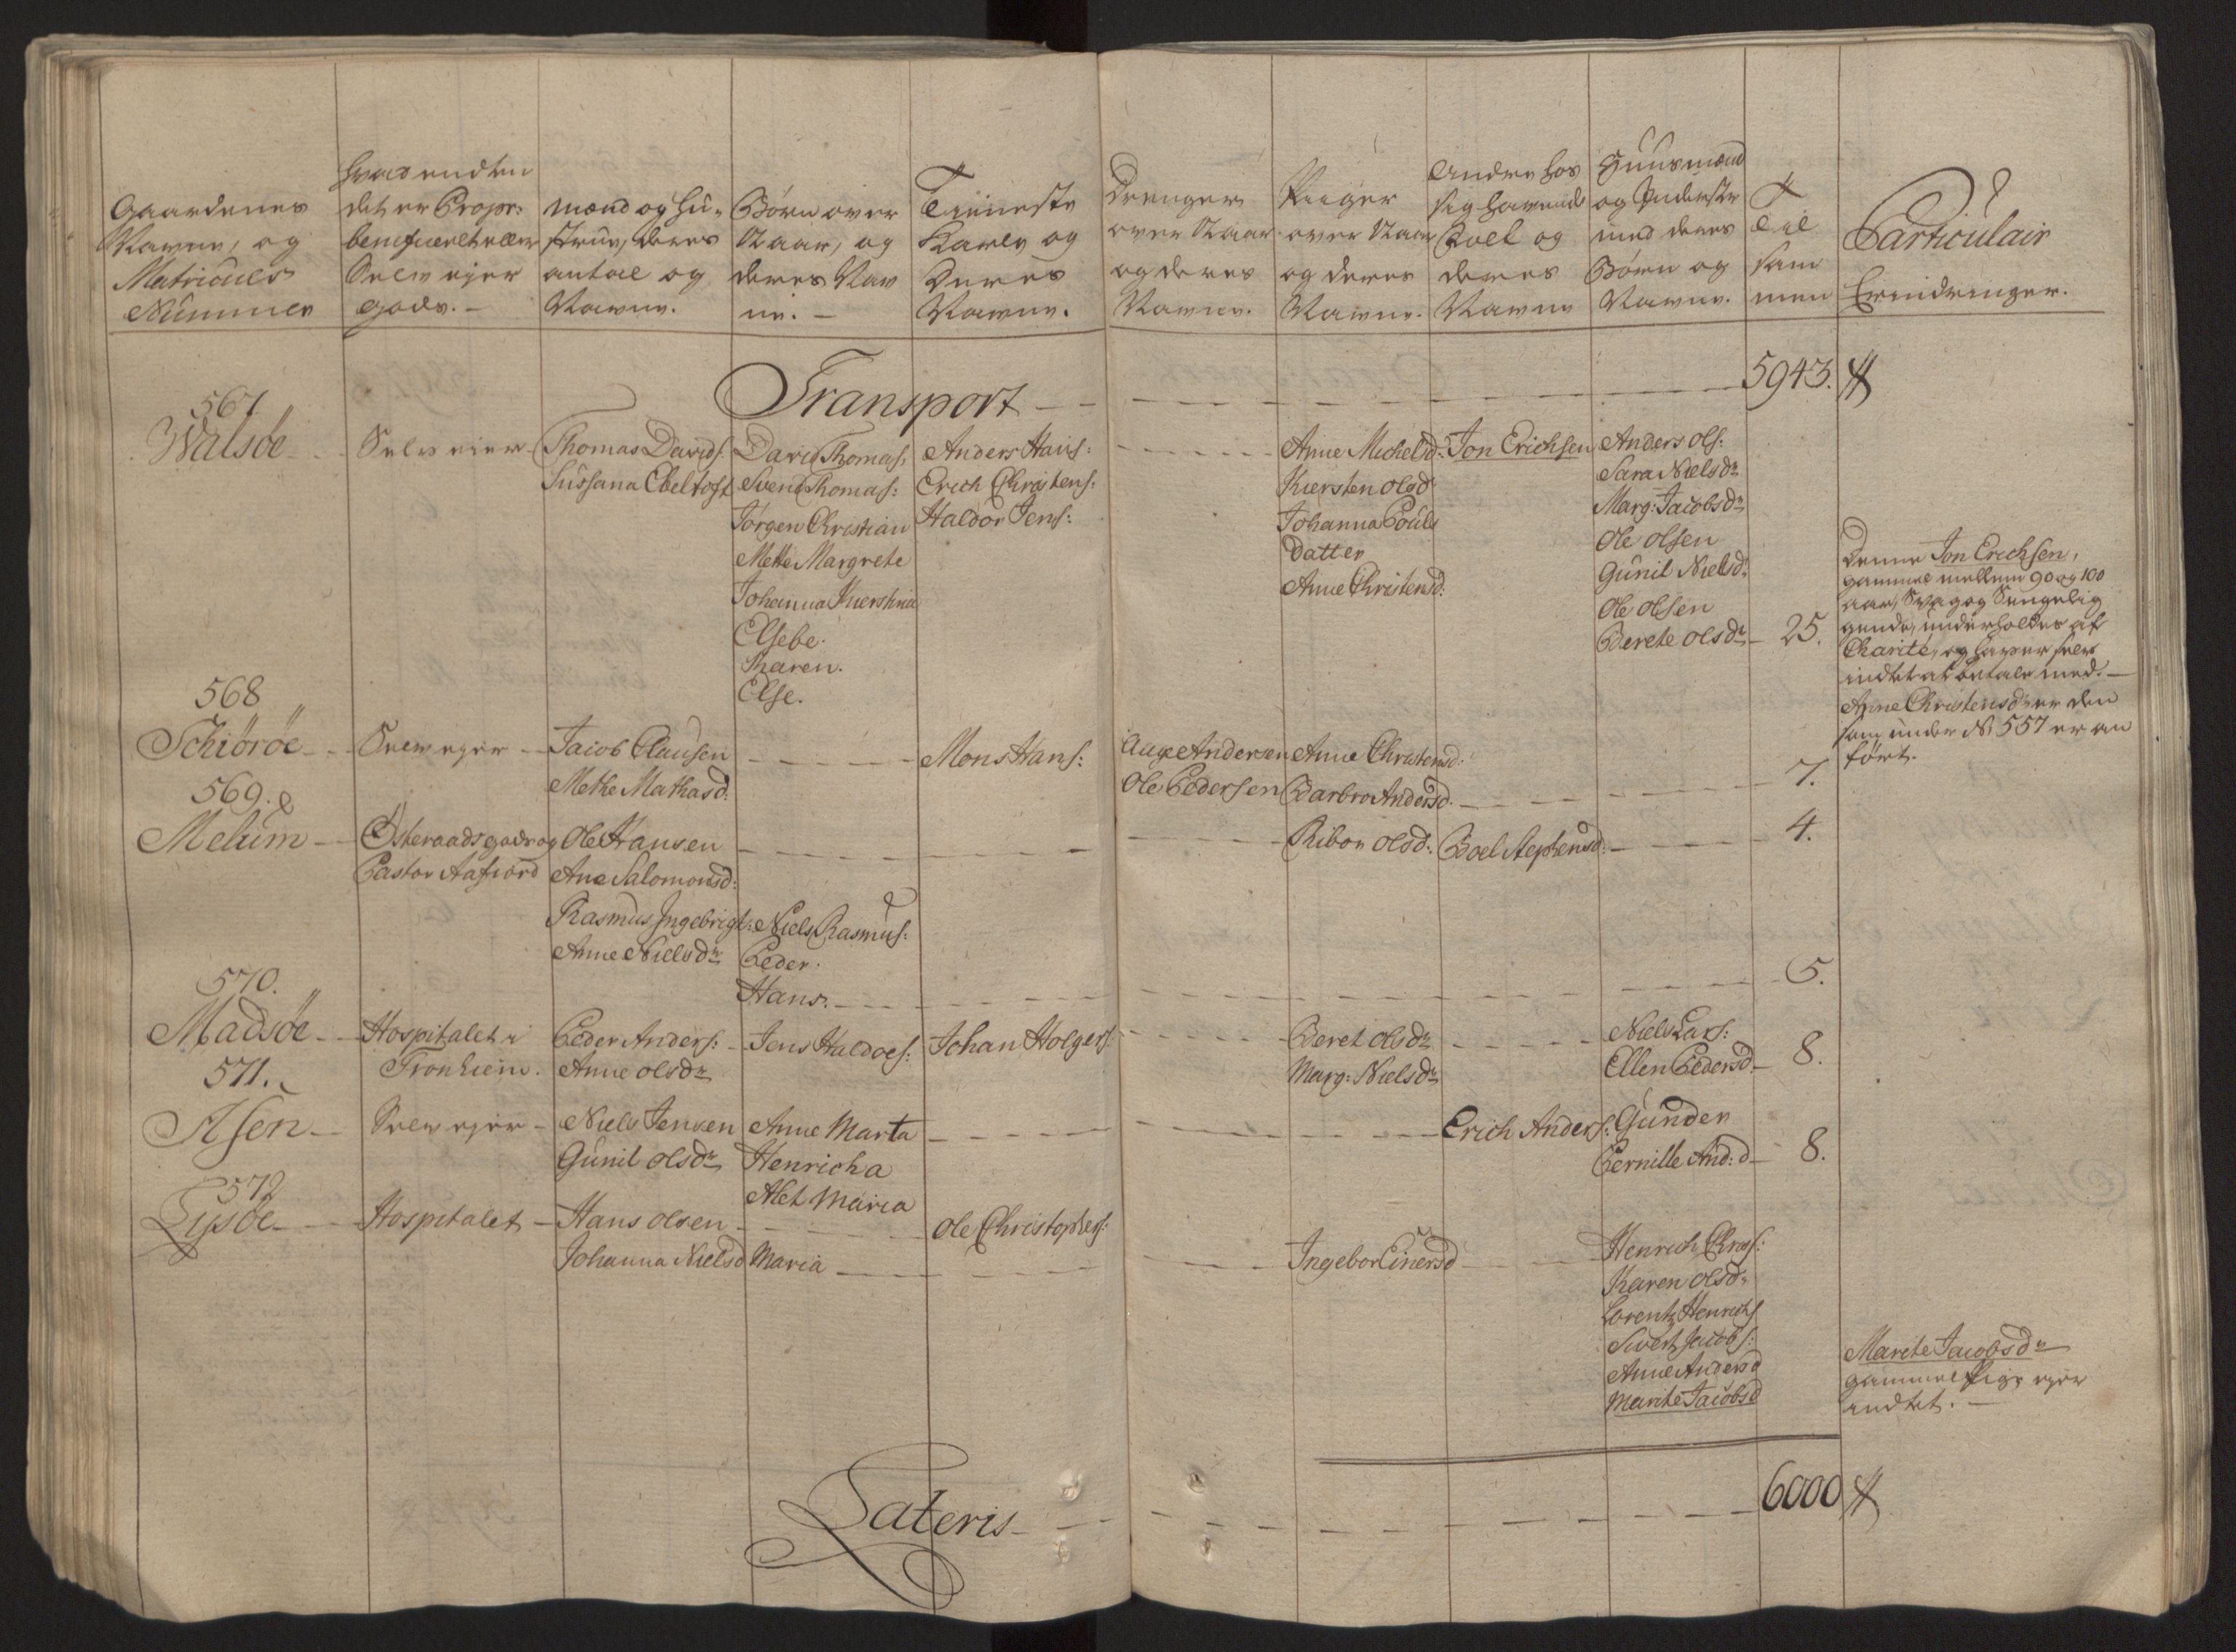 Gaardenes
Navne, og
Matriculs
Nummer
hvad endten
det er Propr:
beneficeret eller
Selv ejer
gods. –
Mænd og Hu-
struer, deres
antal og
Navne.
Børn over
12 aar, og
deres Nav
ne. –
Tieneste
Karle og
Deres
Navne.
Drenger
over 12 aar
og deres
Navne.
Piiger
over 12 aar
og deres
Navne.
Andre hos
sig havende
Folk og
deres
Navne
Huusmænd
og Inderste
med deres
Børn og
Navne.
Til
sam
men
Particulair
Erindringer.
Transport
5943.
567
Walsöe
Selv eier
Thomas Davids:
Sussana Ebeltoft
David Thomas:
Svend Thomas:
Jörgen Christian
Mette Margrete
Johanna Kierstina
Elsebe.
Karen.
Else.
Anders Hans:
Erich Christens:
Haldor Jens:
Anne Michelsd:
Kiersten Olsd
Johanna Pouls
Datter
Anne Christensd:
Jon Erichsen
Anders Ols:
Sara Nielsdr
Marg: Jacobsdr
Ole Olsen
Gunil Nielsd:
Ole Olsen
Berete Olsdr
25.
Denne Jon Erichsen,
gammel mellem 90 og 100
aar, Svag og Sengelig
gende, underholdes af
Charité, og haver selv
indtet at betale med. –
Anne Christensdr er den
som under No 557 er an
ført.
568
Schiöröe
Selv ejer
Jacob Clausen
Mette Mathiasd:
Mons Hans:
Auge Andersen
Ole Pedersen
Anne Christensd:
Barbro Andersd.
7.
569.
Melum
Østeraads gods og
Pastor Aafiord
Ole Hansen
Ane Salomonsd:
Ribor Olsd:
Boel Stephensd:
4.
Rasmus Ingebrigt:
Anne Nielsdr
Niels Rasmus:
Peder.
Hans.
5.
570.
Madsöe
Hospitalet i
Tronhiem.
Peder Anders:
Anne Olsdr
Jens Haldoes:
Johan Holgers:
Beret Olsdr
Marg: Nielsdr
Niels Lars:
Ellen Pedersd
8.
571.
Asen
Selv ejer
Niels Jensen
Gunil Olsdr
Anne Marta
Henricha
Alet Maria
Erich Anders:
Gunder
Pernille And: d
8.
572
Lysöe
Hospitalet
Hans Olsen
Johanna Nielsd
Maria
Ole Christophers:
Ingebor Einersd
Henrich Chris:
Karen Olsdr
Lorentz Henrichs
Sivert Jacobs:
Anne Andersd
Marite Jacobsd
Marite Jacobsdr
gammel Pige ejer
indtet. –
Lateris
6000